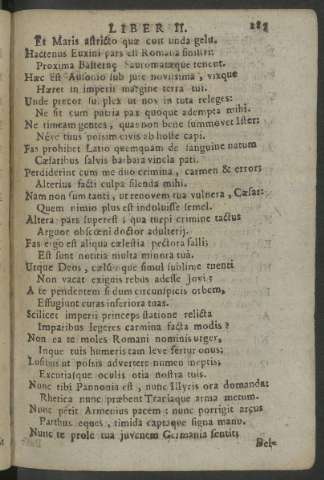 LIBER II. 287
Et Maris astricto quæ coit unda gelu.
Hactenus Euxini pars est Romana sinistri:
Proxima Basternę Sauromatæque tenent.
Hæc est Ausonio sub jure novissima, vixque
Hæret in imperii margine terra tui.
Unde precor supplex ut nos in tuta releges:
Ne sit cum patria pax quoque ademta mihi.
Ne timeam gentes, quas non bene summovet Ister:
Néve tuus possim civis ab hoste capi.
Fas prohibet Latio quemquam de sanguine natum
Cæsaribus salvis barbara vincla pati.
Perdiderint cum me duo crimina, carmen & error:
Alterius facti culpa silenda mihi.
Nam non sum tanti, ut renovem tua vulnera, Cæsar:
Quem nimio plus est indoluisse semel.
Altera pars superest; qua turpi crimine tactus
Arguor obscœni doctor adulterij.
Fas ergo est aliqua cælestia pectora falli;
Et sunt notitia multa minora tuâ.
Utque Deos, cælumque simul sublime tuenti
Non vacat exiguis rebus adesse Jovi:
A te pendentem si dum circunspicis orbem,
Effugiunt curas inferiora tuas.
Scilicet imperii princeps statione relicta
Imparibus legeres carmina facta modis?
Non ea te moles Romani nominis urget,
Inque tuis humeris tam leve fertur onus;
Lusibus ut possis advertere numen ineptis,
Excutiasque oculis otia nostra tuis.
Nunc tibi Pannonia est, nunc Illyris ora domanda:
Rhetica nunc præbent Traciaque arma metum.
Nunc petit Armenius pacem: nunc porrigit arcus
Parthus eques, timida captaque signa manu.
Nunc te prole tua juvenem Germania sentit;
Bel-